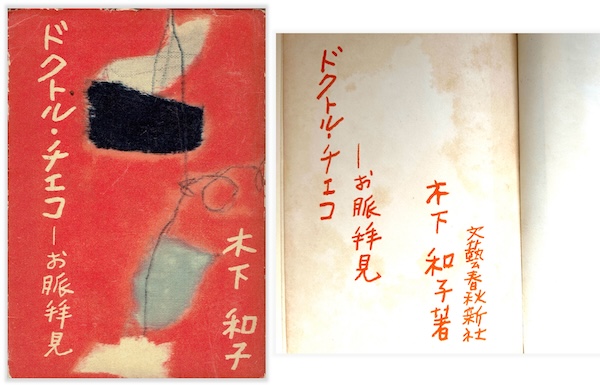 ドクトル・チエコ
—お脈拝見
木下和子
ドクトル・チエコ
—お脈拝見
木下和子著
文藝春秋新社